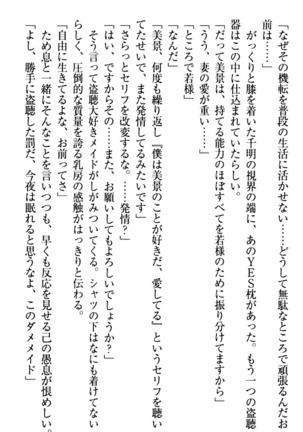 「なぜその機転を普段の生活に活かせない……無駄なところで頑張るんだお
前は……」
　がっくりと膝を着いた千明の視界の端に、あのYES枕があった。もう一つの盗聴
器はこの中に仕込まれていたらしい。
「だって美景は、持てる能力のほぼすべてを若様のために振り分けてますから」
「うう、妻の愛が重い……」
「ところで若様」
「なんだ」
「美景、何度も繰り返し『僕は美景のことが好きだ、愛してる』というセリフを聴い
てたせいで、また発情してるみたいです」
「さらっとセリフを改変するな。……発情？」
「はい、ですからその……また、お願いしてもよろしいでしょうか？」
　そう言って盗聴大好きメイドがしがみついてくる。シャツの下はなにも着けてない
らしく、圧倒的な質量を誇る乳房の感触がはっきりと伝わる。
「自由に生きてるよな、お前ってさ」
　ため息と一緒にそんなことを言いつつも、早くも反応を見せる己の愚息が恨めしい。
「よし、勝手に盗聴した罰だ、今夜は眠れると思うなよ、このダメメイド」